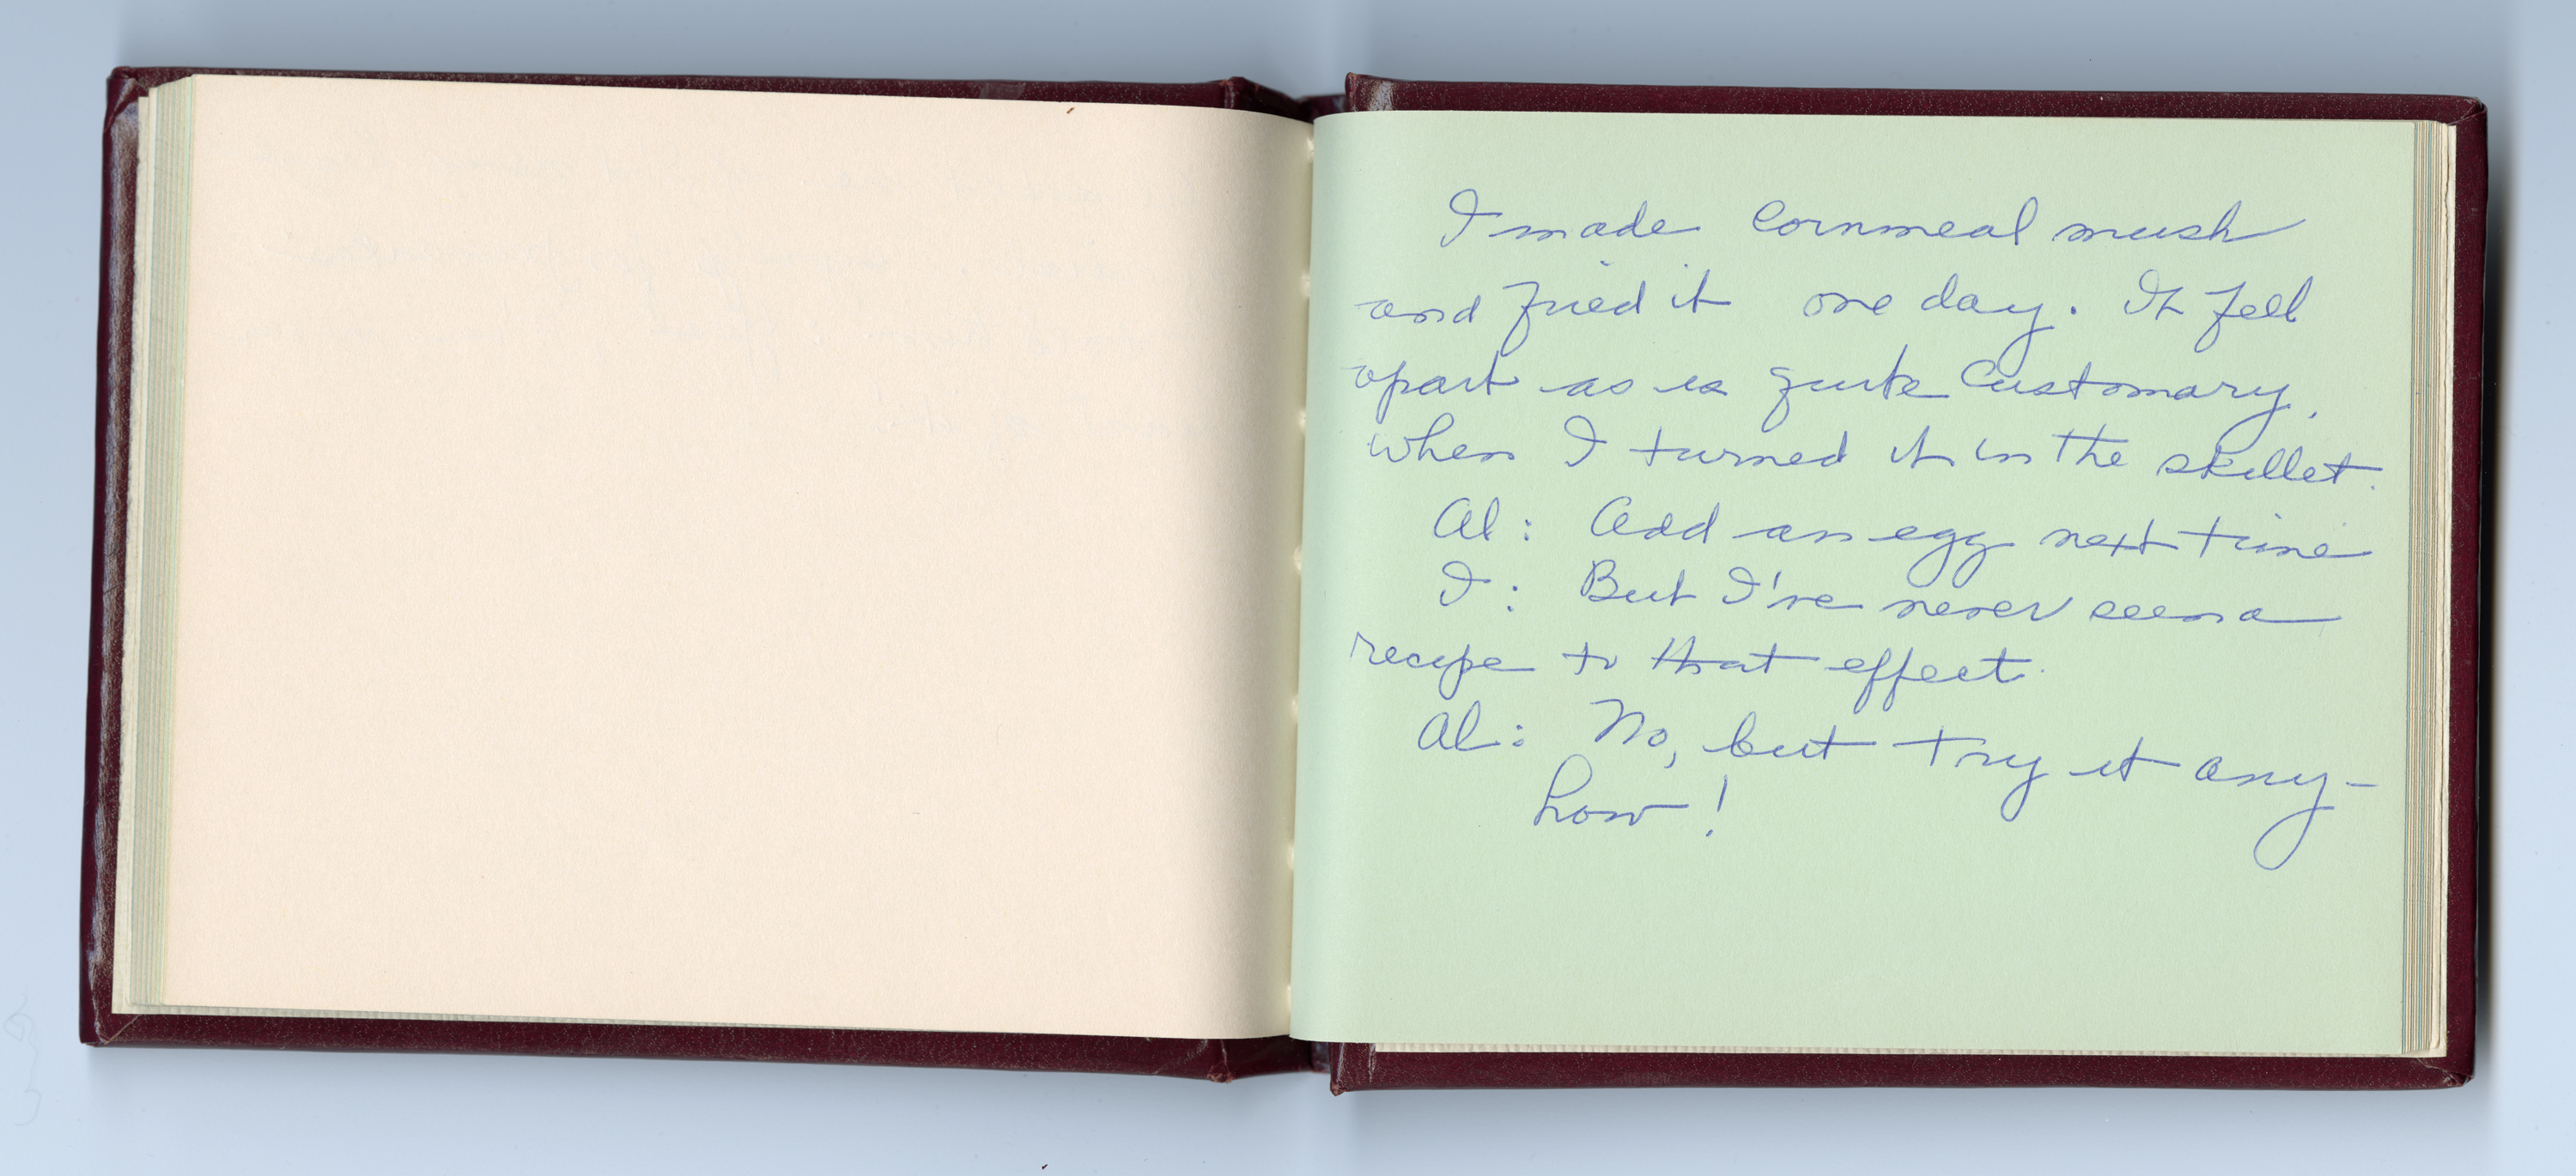 I made Cornmeal mush
and fried it one day. It fell
apart as is quite Customary,
when I turned it in the skillet.
Al: Add an egg next time
I: But I've never seen a
recipe to that effect.
Al: No, but try it any-
how!